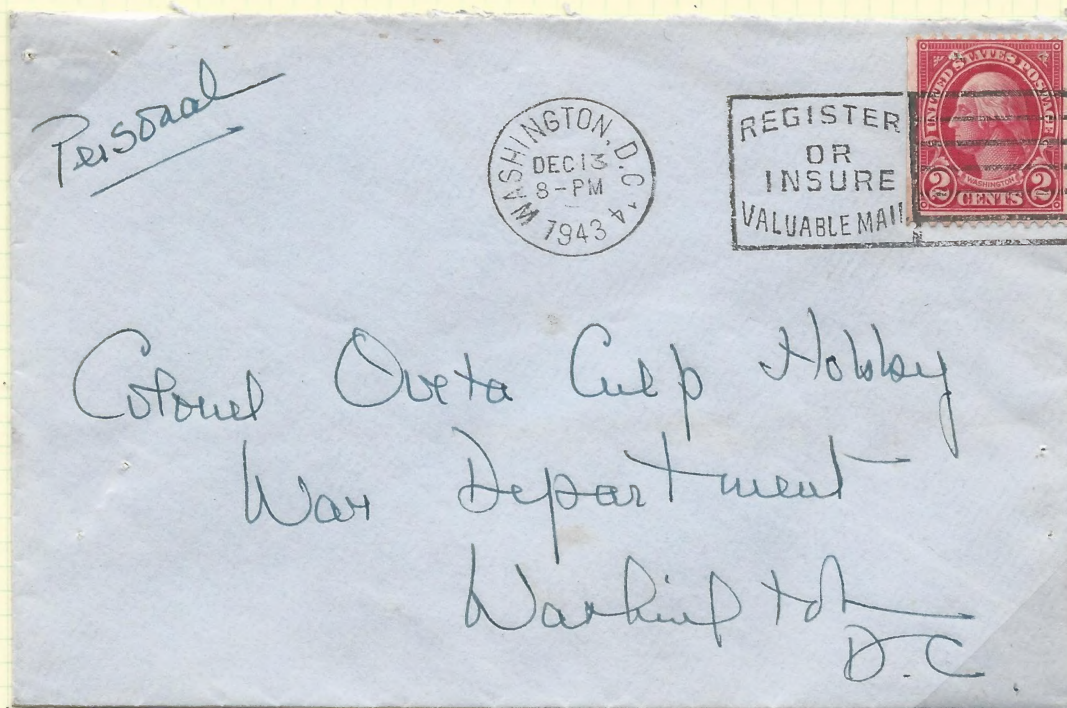 Personal
WASHINGTON, D.C. 4
DEC 13
8-PM
1943
REGISTER
OR
INSURE
VALUABLE MAIL
UNITED STATES POSTAGE
WASHINGTON
2 CENTS 2
Colonel Oveta Culp Hobby
War Department
Washington
D.C